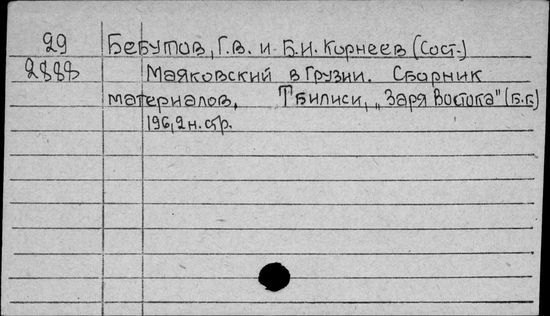 29 Бебутов, Г.В. и Б.И. Корнеев (Сост.)
2888 Маяковский в Грузии. Сборник
материалов. Тбилиси, „Заря Востока" (б.г.)
196, 2 н. стр.